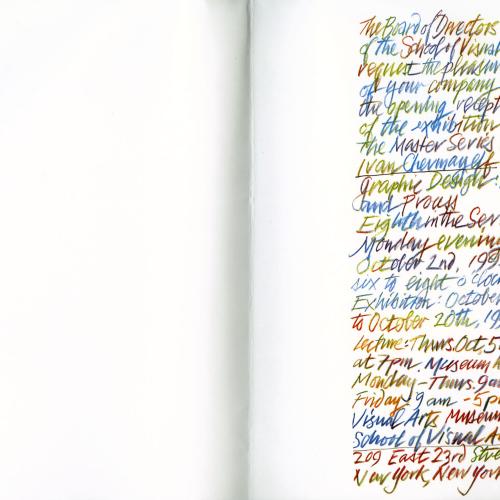 The Board of Directors
of the School of Visual
request the pleasure
of your company
the opening recept
of the exhibition
the Master Series
Ivan Chermayeff
Graphic Design:
and Process
Eighth in the Ser
Monday evening
October 2nd, 199
six to eight o'cloc
Exhibition: October
to October 20th, 19
Lecture: Thurs. Oct. 5
at 7pm. Museum h
Monday-Thurs. 9a
Friday 9 am - 5p
Visual Arts Museum
School of Visual A
209 East 23rd Stre
New York, New York